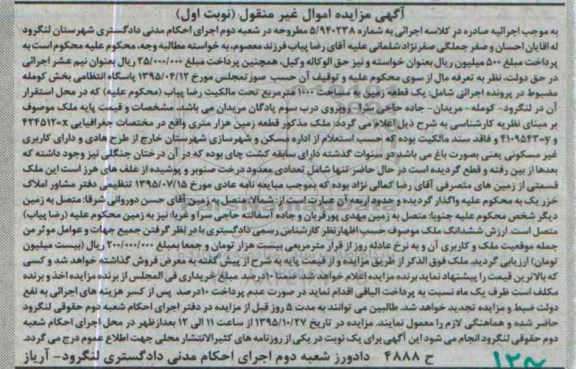 آگهی مزایده اموال غیر منقول (نوبت اول)
به موجب اجرائیه صادره در کلاسه اجرائی به شماره ۵/۹۴۰۲۳۸ مطروحه در شعبه دوم اجرای احکام مدنی دادگستری شهرستان لنگرود
له آقایان احسان و صفر جملگی صفرنژاد شلمانی علیه آقای رضا پیاب فرزند معصوم، به خواسته مطالبه وجه، محکوم علیه محکوم است به
پرداخت مبلغ ۵۰۰ میلیون ریال بعنوان خواسته و نیز حق الوکاله وکیل، همچنین پرداخت مبلغ ۲۵/۰۰۰/۰۰۰ ریال بعنوان نیم عشر اجرائی
در حق دولت، نظر به تعرفه مال از سوی محکوم علیه و توقیف آن حسب صورتمجلس مورخ ۱۳۹۵/۰۴/۱۲ پاسگاه انتظامی بخش کومله
مضبوط در پرونده اجرائی شامل: یک قطعه زمین به مساحت ۱۰۰۰ مترمربع تحت مالکیت رضا پیاب (محکوم علیه) که در محل استقرار
آن در لنگرود- کومله- مریدان- جاده حاجی سرا- روبروی درب سوم پادگان مریدان می باشد، مشخصات و قیمت پایه ملک موصوف
بر مبنای نظریه کارشناسی به شرح ذیل اعلام می گردد: ملک مذکور قطعه زمین هزار متری واقع در مختصات جغرافیایی ۴۲۴۵۱۲۰x
۴۱۰۹۵۴۳-y و فاقد سند مالکیت بوده که حسب استعلام از اداره مسکن و شهرسازی شهرستان خارج از طرح هادی و دارای کاربری
غیر مسکونی یعنی بصورت باغ می باشد در سنوات گذشته دارای سابقه کشت چای بوده که در آن درختان جنگلی نیز وجود داشته که
بعدها از بین رفته و قطع گردیده است در حال حاضر تنها شامل تعدادی معدود درخت صنوبر و پوشیده از علف های هرز است این ملک
قسمتی از زمین های متصرفی آقای رضا کمالی نژاد بوده که بموجب مبایعه نامه عادی مورخ ۱۳۹۵/۰۷/۱۵ تنظیمی دفتر مشاور املاک
خزر یک به محکوم علیه واگذار گردیده و حدود اربعه آن عبارتست از: شمالا: متصل به زمین آقای حسن دوروانی شرقا: متصل به زمین
دیگر شخص محکوم علیه جنوبا: متصل به زمین مهدی پورقربان و جاده آسفالته حاجی سرا و غربا: نیز به زمین محکوم علیه (رضا پیاب)
متصل است. ارزش ششدانگ ملک موصوف حسب اظهارنظر کارشناس رسمی دادگستری با در نظر گرفتن جمیع جهات و عوامل موثر من
جمله موقعیت ملک و کاربری آن و به نرخ عادله روز از قرار مترمربعی بیست هزار تومان و جمعا بمبلغ ۲۰۰/۰۰۰/۰۰۰ ریال (بیست میلیون
تومان) ارزیابی گردید. ملک فوق الذکر از طریق مزایده و از قیمت پایه به شرح از پیش گفته به معرض فروش گذاشته خواهد شد و کسی
که بالاترین قیمت را پیشنهاد نماید برنده مزایده اعلام خواهد شد. ضمنا ۱۰درصد مبلغ خریداری فی المجلس از برنده مزایده اخذ و برنده
مکلف است ظرف یک ماه نسبت به پرداخت الباقی اقدام نماید در صورت عدم پرداخت ۱۰درصد پس از کسر هزینه های اجرائی به نفع
دولت ضبط و مزایده تجدید خواهد شد. طالبین می توانند به مدت ۵ روز قبل از مزایده در دفتر اجرای احکام شعبه دوم حقوقی لنگرود
حاضر شده و هماهنگی لازم را معمول نمایند. مزایده در تاریخ ۱۳۹۵/۱۰/۲۷ از ساعت ۱۱ الی ۱۲ بعدازظهر در محل اجرای احکام شعبه
دوم حقوقی لنگرود انجام می شود این آگهی برای یک نوبت در یکی از روزنامه های کثیرالانتشار محلی جهت اطلاع عموم درج می گردد.
ح ۴۸۸۸ دادورز شعبه دوم اجرای احکام مدنی دادگستری لنگرود- آریاز